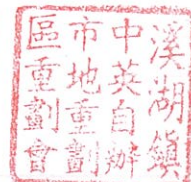 溪湖鎮
中英自辦
市地重劃
區重劃會